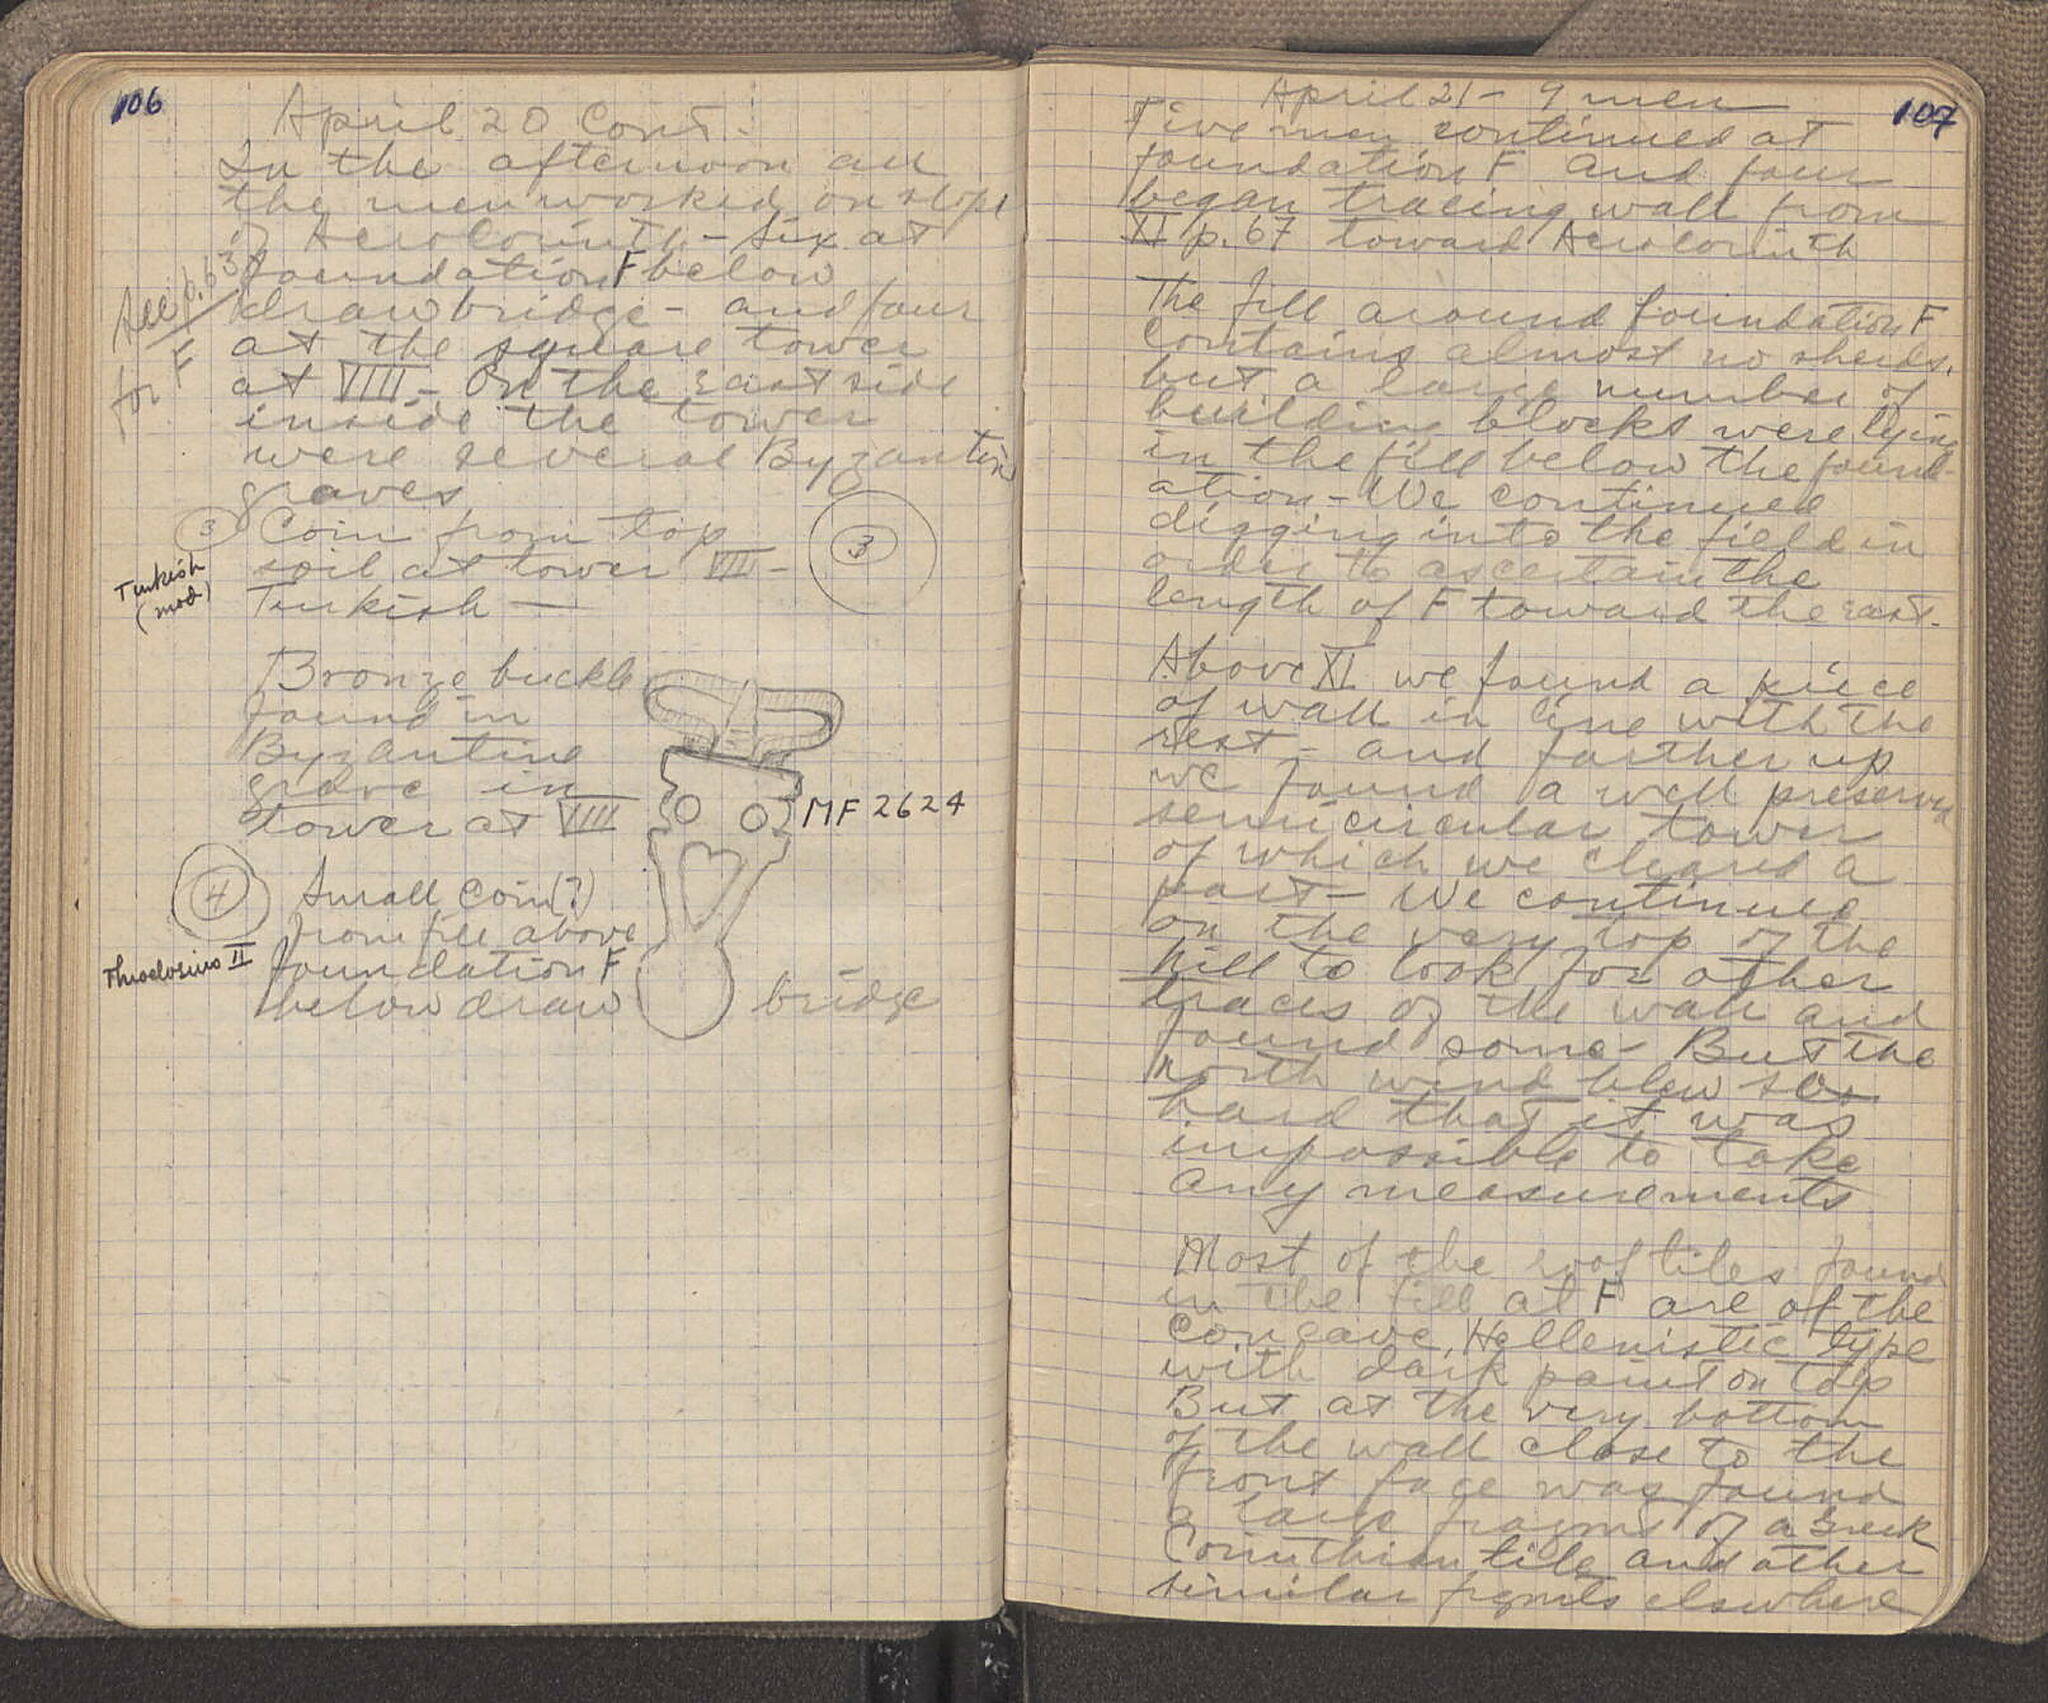 106
April 20 Cont -
In the afternoon all
the men worked on slope
of Acrocorinth - six at
foundation F below
drawbridge - and four
at the square tower
at VIII - On the east side
inside the tower
were several Byzantine
graves
See p. 63
for F
3 Coin from top
soil at tower VIII -
Turkish —
3
Turkish
(mod)
Bronze buckle
found in
Byzantine
grave in
tower at VIII
MF 2624
4 Small Coin (?)
from fill above
foundation F
below draw bridge
Theodosius II
107
April 21 - 9 men
Five men continued at
foundation F and four
began tracing wall from
XI p. 67 toward Acrocorinth
The fill around foundation F
contains almost no sherds.
but a large number of
building blocks were lying
in the fill below the found-
ation - We continued
digging into the field in
order to ascertain the
length of F toward the east.
Above XI we found a piece
of wall in line with the
rest - and farther up
we found a well preserved
semicircular tower
of which we cleared a
part - We continued
on the very top of the
hill to look for other
traces of the wall and
found some - But the
north wind blew so
hard that it was
impossible to take
any measurements
Most of the roof tiles found
in the fill at F are of the
concave, Hellenistic type
with dark paint on top
But at the very bottom
of the wall close to the
front face was found
a large fragmt of a Greek
Corinthian tile and other
similar fragmts elsewhere